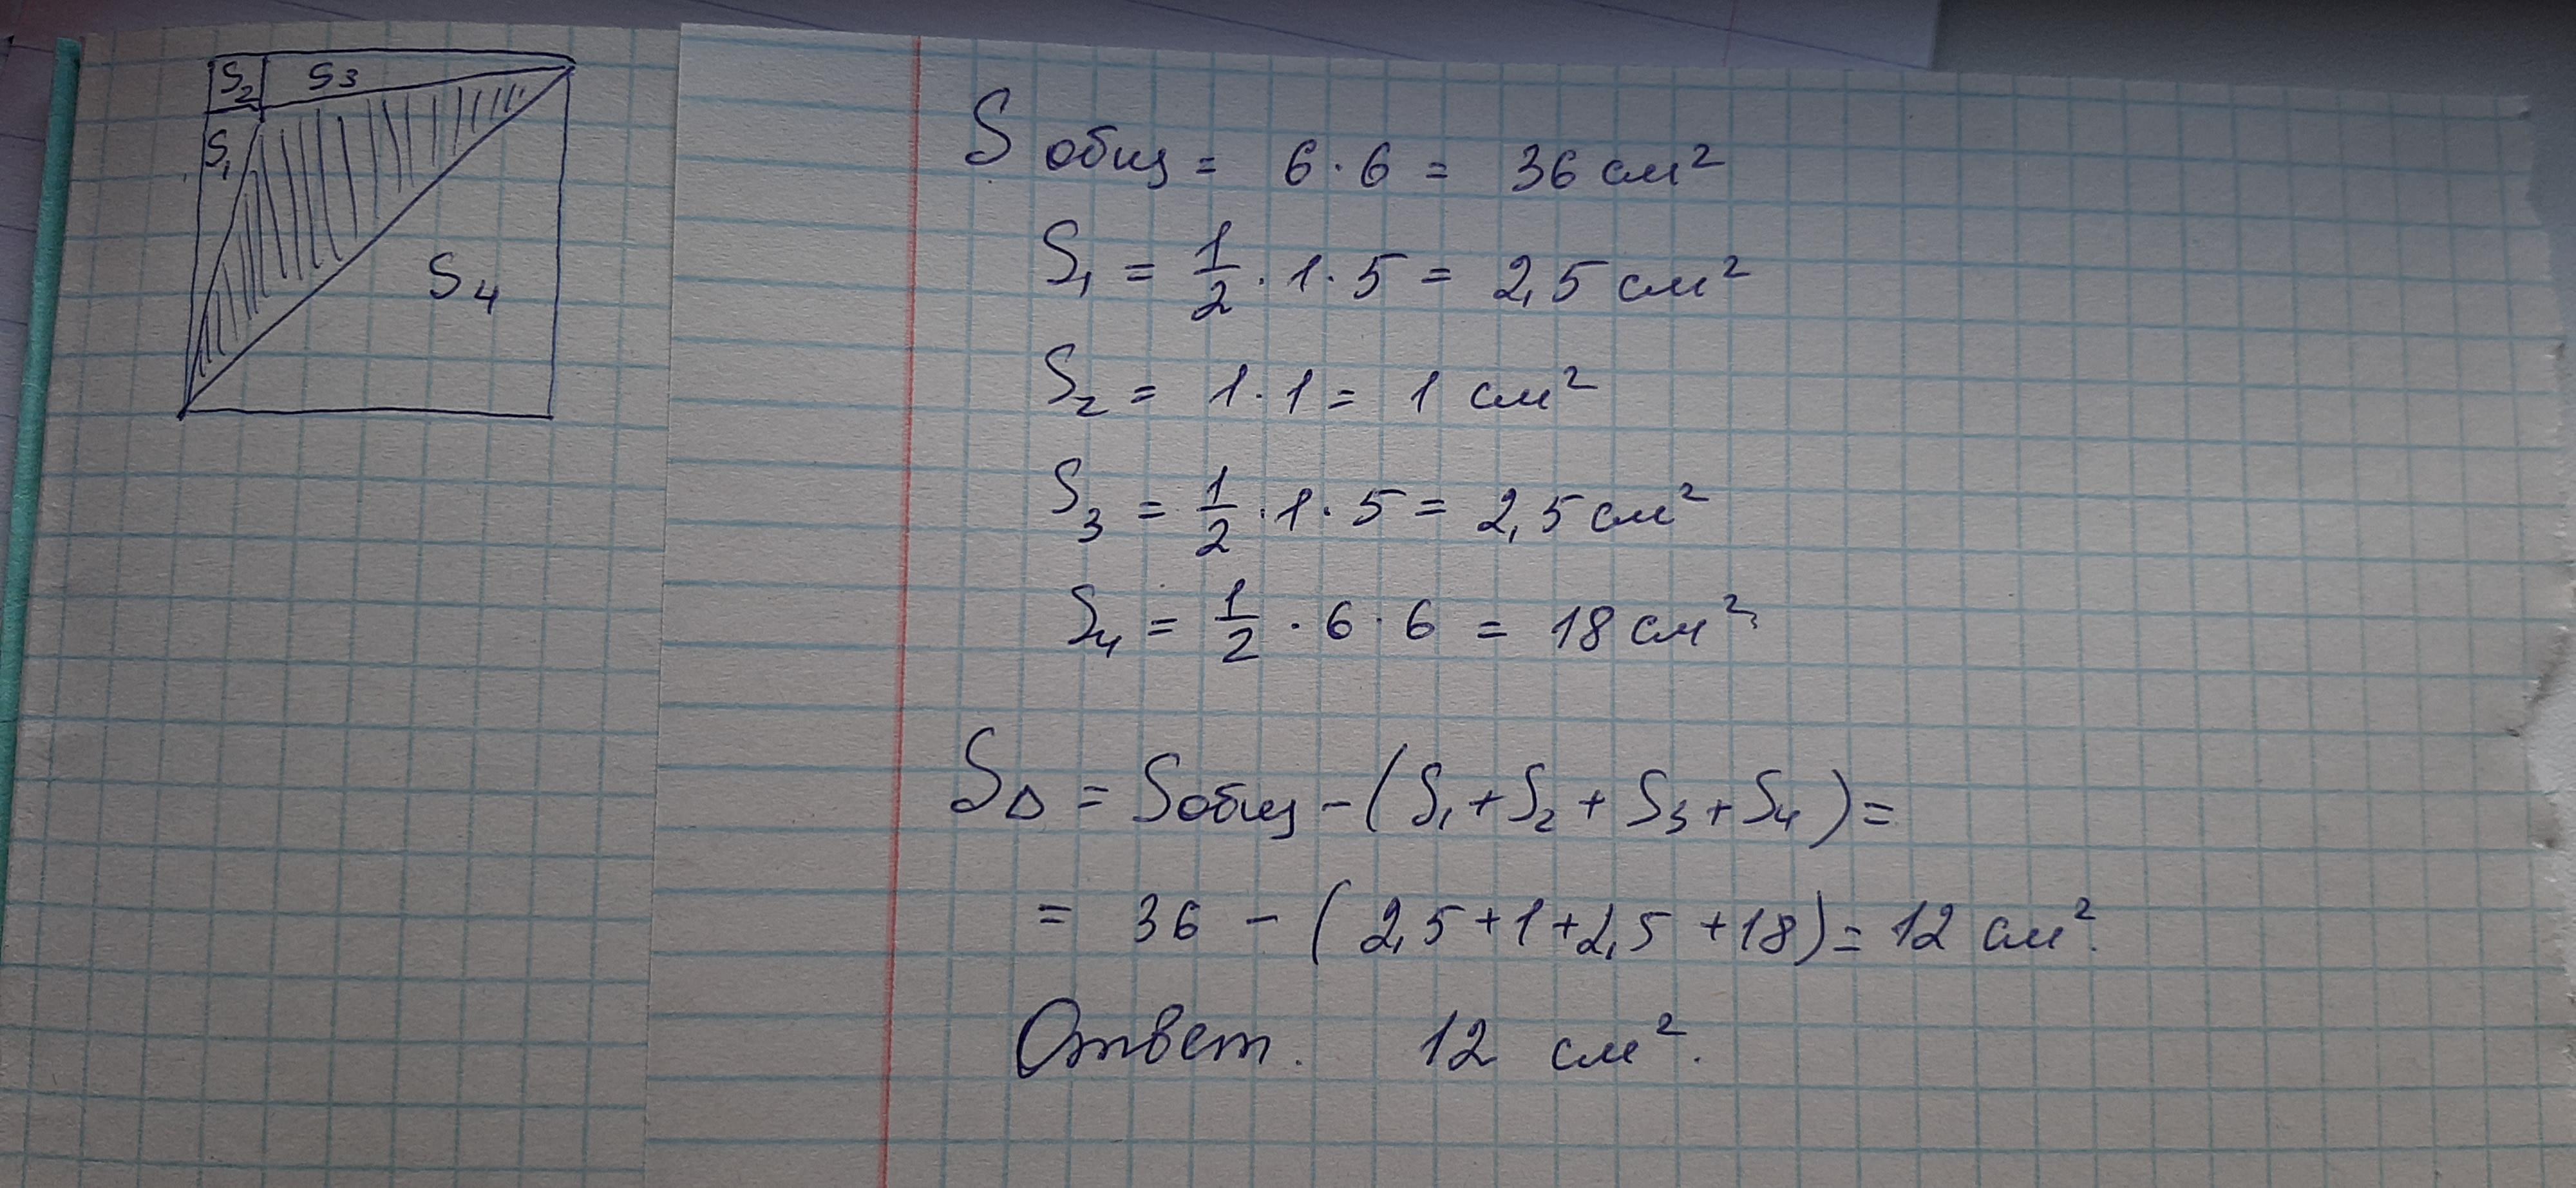 S2 S3
S1
S4
S общ = 6 · 6 = 36 см²
S₁ = 1/2 · 1 · 5 = 2,5 см²
S₂ = 1 · 1 = 1 см²
S₃ = 1/2 · 1 · 5 = 2,5 см²
S₄ = 1/2 · 6 · 6 = 18 см²
S△ = Sобщ - (S₁ + S₂ + S₃ + S₄) =
= 36 - (2,5 + 1 + 2,5 + 18) = 12 см².
Ответ. 12 см².